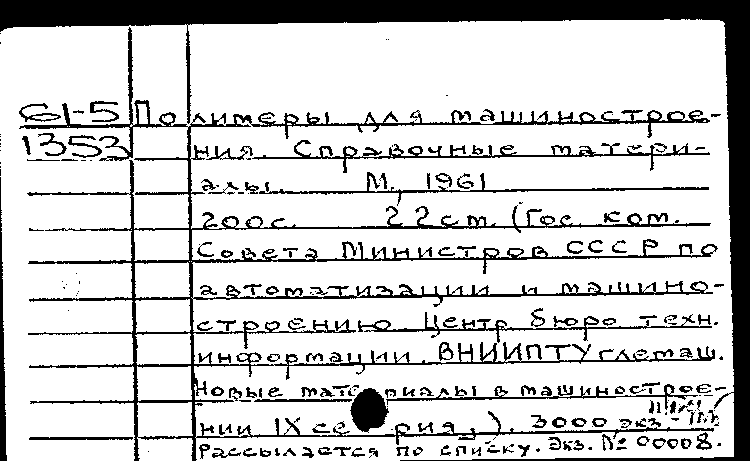 61-5 Полимеры для машинострое-
1353 ния. Справочные матери-
алы. М., 1961
200с. 22см. (Гос. ком.
Совета Министров СССР по
автоматизации и машино-
строению. Центр. бюро техн.
информации. ВНИИПТУглемаш.
Новые материалы в машинострое-
нии IX се рия,). 3000 экз.
Рассылается по списку. Экз. № 00008.